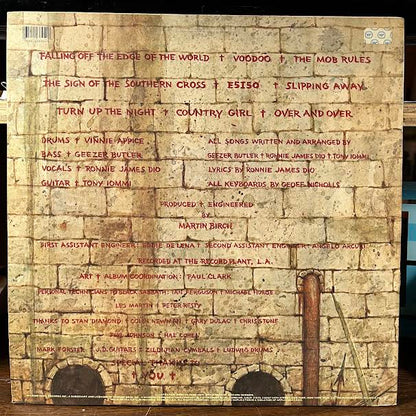 FALLING OFF THE EDGE OF THE WORLD † VOODOO † THE MOB RULES
THE SIGN OF THE SOUTHERN CROSS † E5150 † SLIPPING AWAY
TURN UP THE NIGHT † COUNTRY GIRL † OVER AND OVER
DRUMS † VINNIE APPICE
BASS † GEEZER BUTLER
VOCALS † RONNIE JAMES DIO
GUITAR † TONY IOMMI
ALL SONGS WRITTEN AND ARRANGED BY
GEEZER BUTLER † RONNIE JAMES DIO † TONY IOMMI
LYRICS BY RONNIE JAMES DIO
ALL KEYBOARDS BY GEOFF NICHOLLS
PRODUCED † ENGINEERED
BY
MARTIN BIRCH
FIRST ASSISTANT ENGINEER: EDDIE DELENA † SECOND ASSISTANT ENGINEER: ANGELO ARCURI
RECORDED AT THE RECORD PLANT, L.A.
ART † ALBUM COORDINATION: PAUL CLARK
PERSONAL TECHNICIANS TO BLACK SABBATH: IAN FERGUSON † MICHAEL HOWSE
LES MARTIN † PETER RESTY
THANKS TO STAN DIAMOND † COLIN NEWMAN † GARY DULAC † CHRIS STONE
PAUL JOHNSON †
MARK FORSTER J.D. GUITARS † ZILDJIAN CYMBALS † LUDWIG DRUMS
SPECIAL THANKS TO
† YOU †